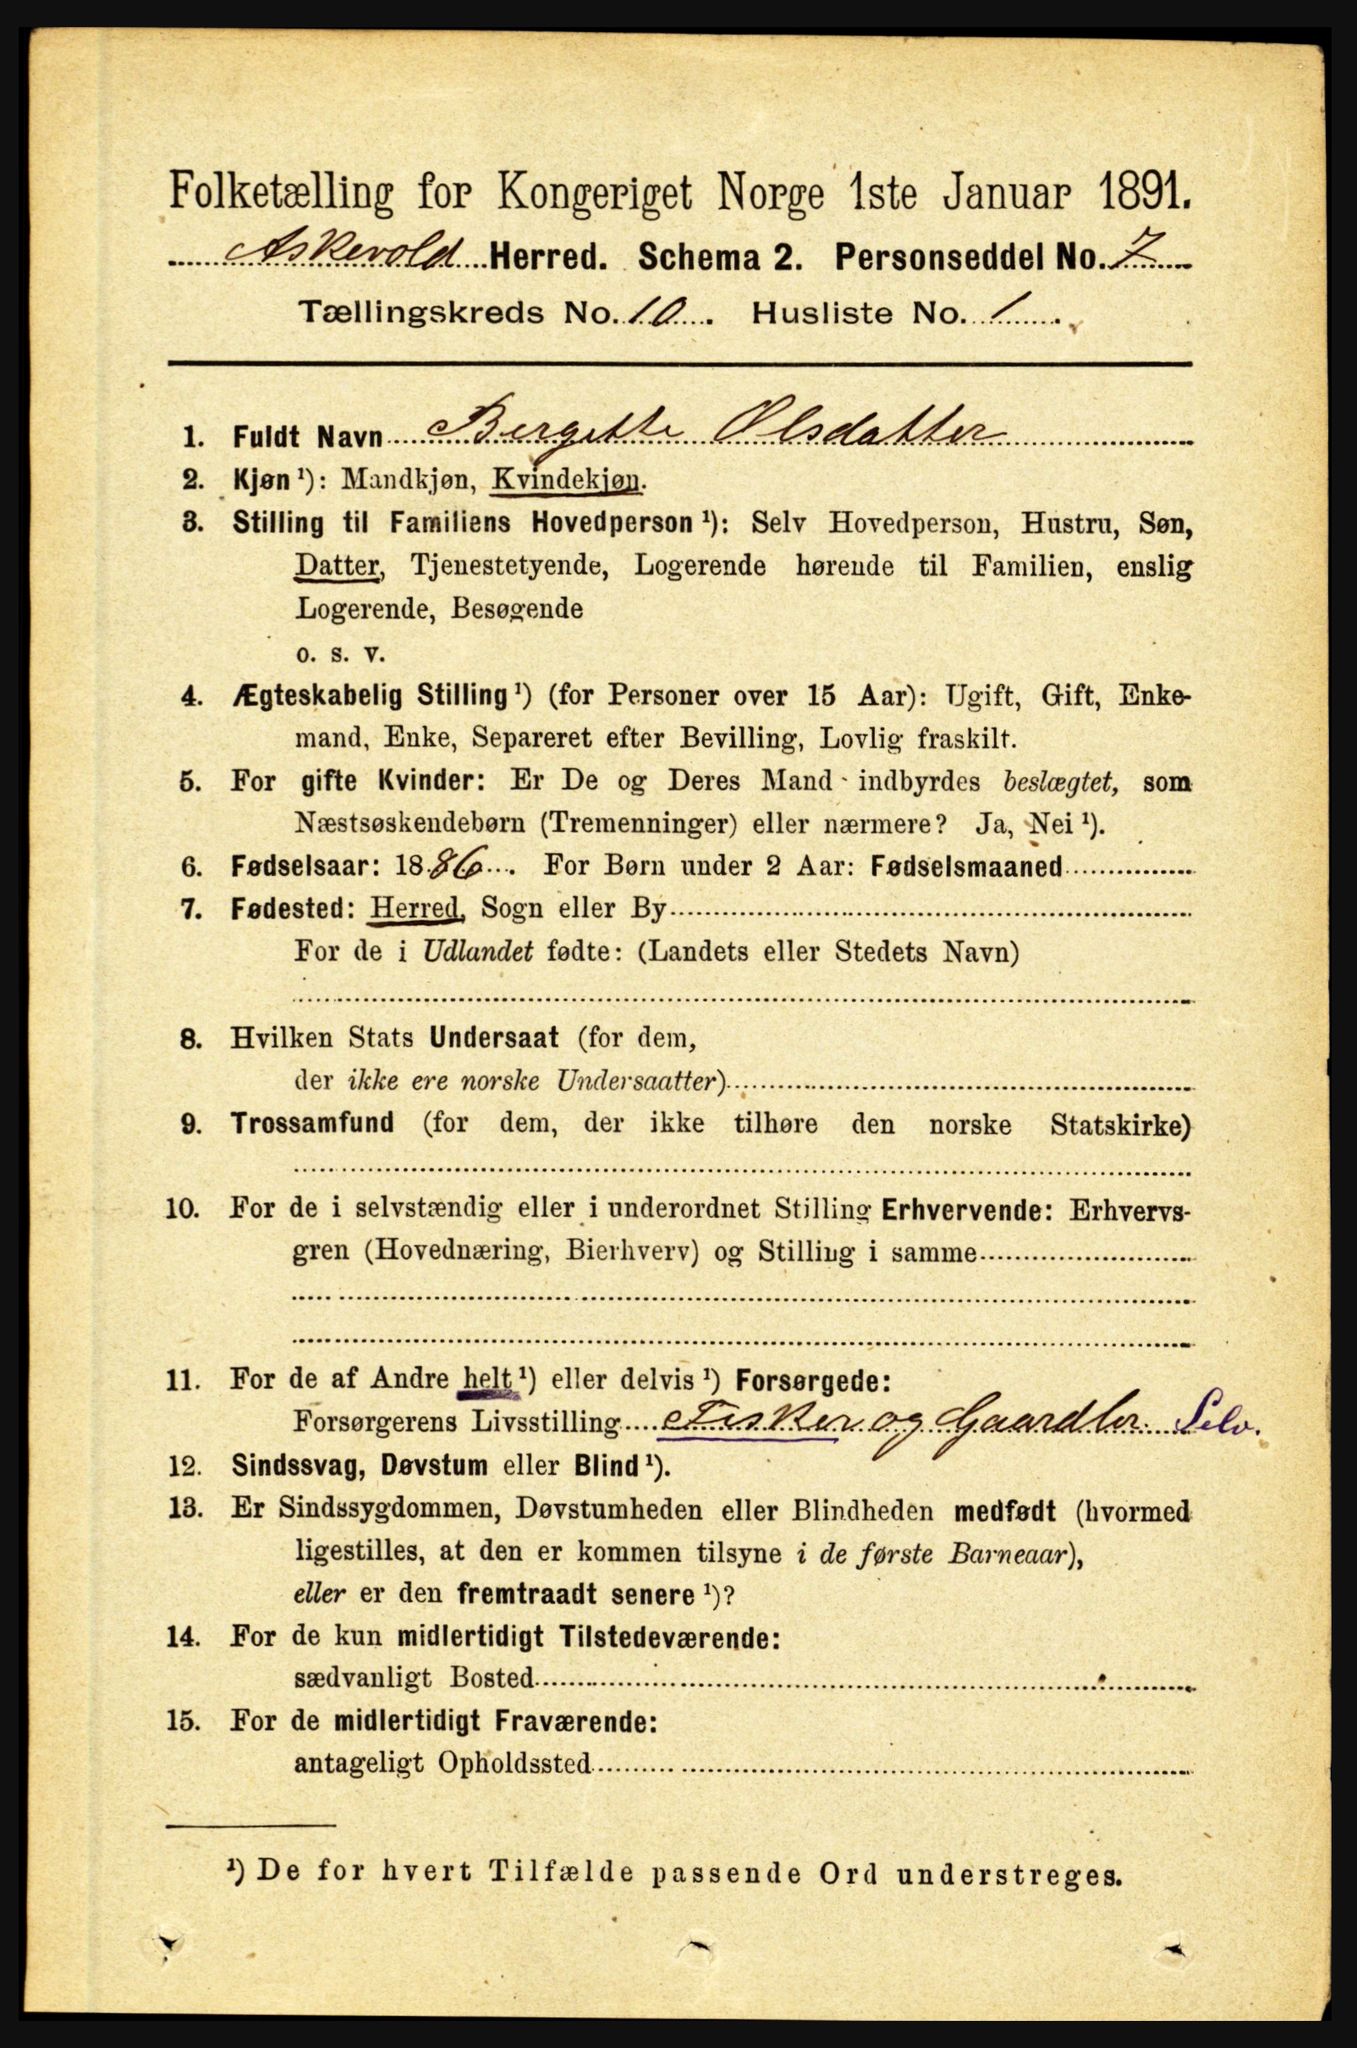 Folketælling for Kongeriget Norge 1ste Januar 1891.
Askevold Herred. Schema 2. Personseddel No. 7
Tællingskreds No. 10. Husliste No. 1.
1. Fuldt Navn Bergitte Olsdatter
2. Kjøn ¹): Mandkjøn, Kvindekjøn.
3. Stilling til Familiens Hovedperson ¹): Selv Hovedperson, Hustru, Søn,
Datter, Tjenestetyende, Logerende hørende til Familien, enslig
Logerende, Besøgende
o. s. v.
4. Ægteskabelig Stilling ¹) (for Personer over 15 Aar): Ugift, Gift, Enke-
mand, Enke, Separeret efter Bevilling, Lovlig fraskilt.
5. For gifte Kvinder: Er De og Deres Mand indbyrdes beslægtet, som
Næstsøskendebørn (Tremenninger) eller nærmere? Ja, Nei ¹).
6. Fødselsaar: 1886. For Børn under 2 Aar: Fødselsmaaned
7. Fødested: Herred, Sogn eller By
For de i Udlandet fødte: (Landets eller Stedets Navn)
8. Hvilken Stats Undersaat (for dem,
der ikke ere norske Undersaatter)
9. Trossamfund (for dem, der ikke tilhøre den norske Statskirke)
10. For de i selvstændig eller i underordnet Stilling Erhvervende: Erhvervs-
gren (Hovednæring, Bierhverv) og Stilling i samme
11. For de af Andre helt ¹) eller delvis ¹) Forsørgede:
Forsørgerens Livsstilling Fisker og Gaardbr. Selv.
12. Sindssvag, Døvstum eller Blind ¹).
13. Er Sindssygdommen, Døvstumheden eller Blindheden medfødt (hvormed
ligestilles, at den er kommen tilsyne i de første Barneaar),
eller er den fremtraadt senere ¹)?
14. For de kun midlertidigt Tilstedeværende:
sædvanligt Bosted
15. For de midlertidigt Fraværende:
antageligt Opholdssted
¹) De for hvert Tilfælde passende Ord understreges.